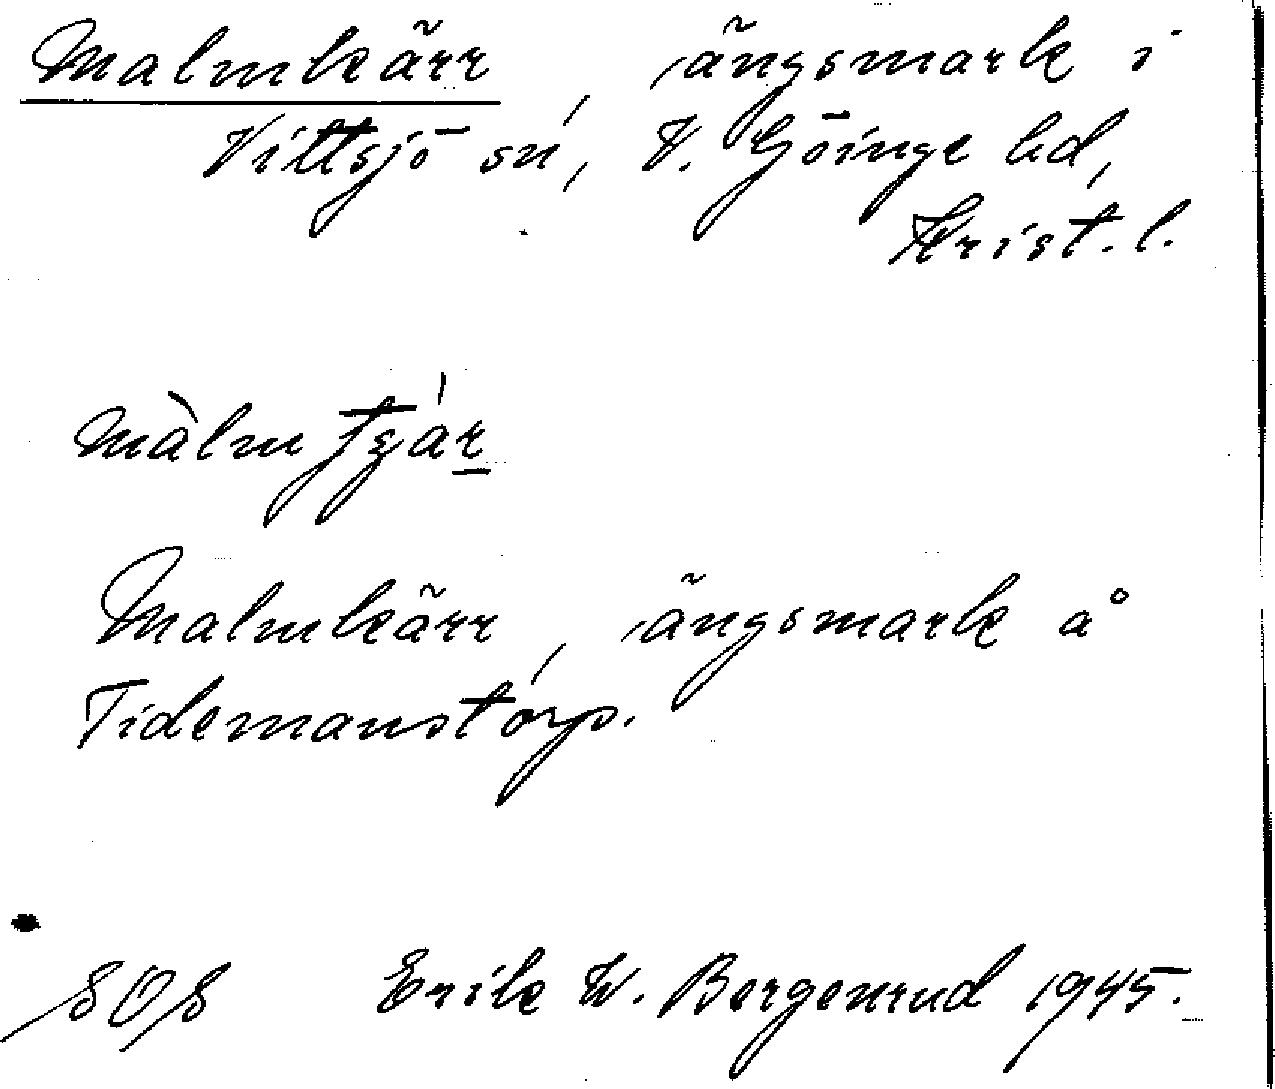 Malmkärr, ängsmark i
Vittsjö sn, V. Göinge hd,
Krist. l.
màlmtʒár
Malmkärr, ängsmark å
Tidemanstorp.
Erik W. Bergenrud 1945.